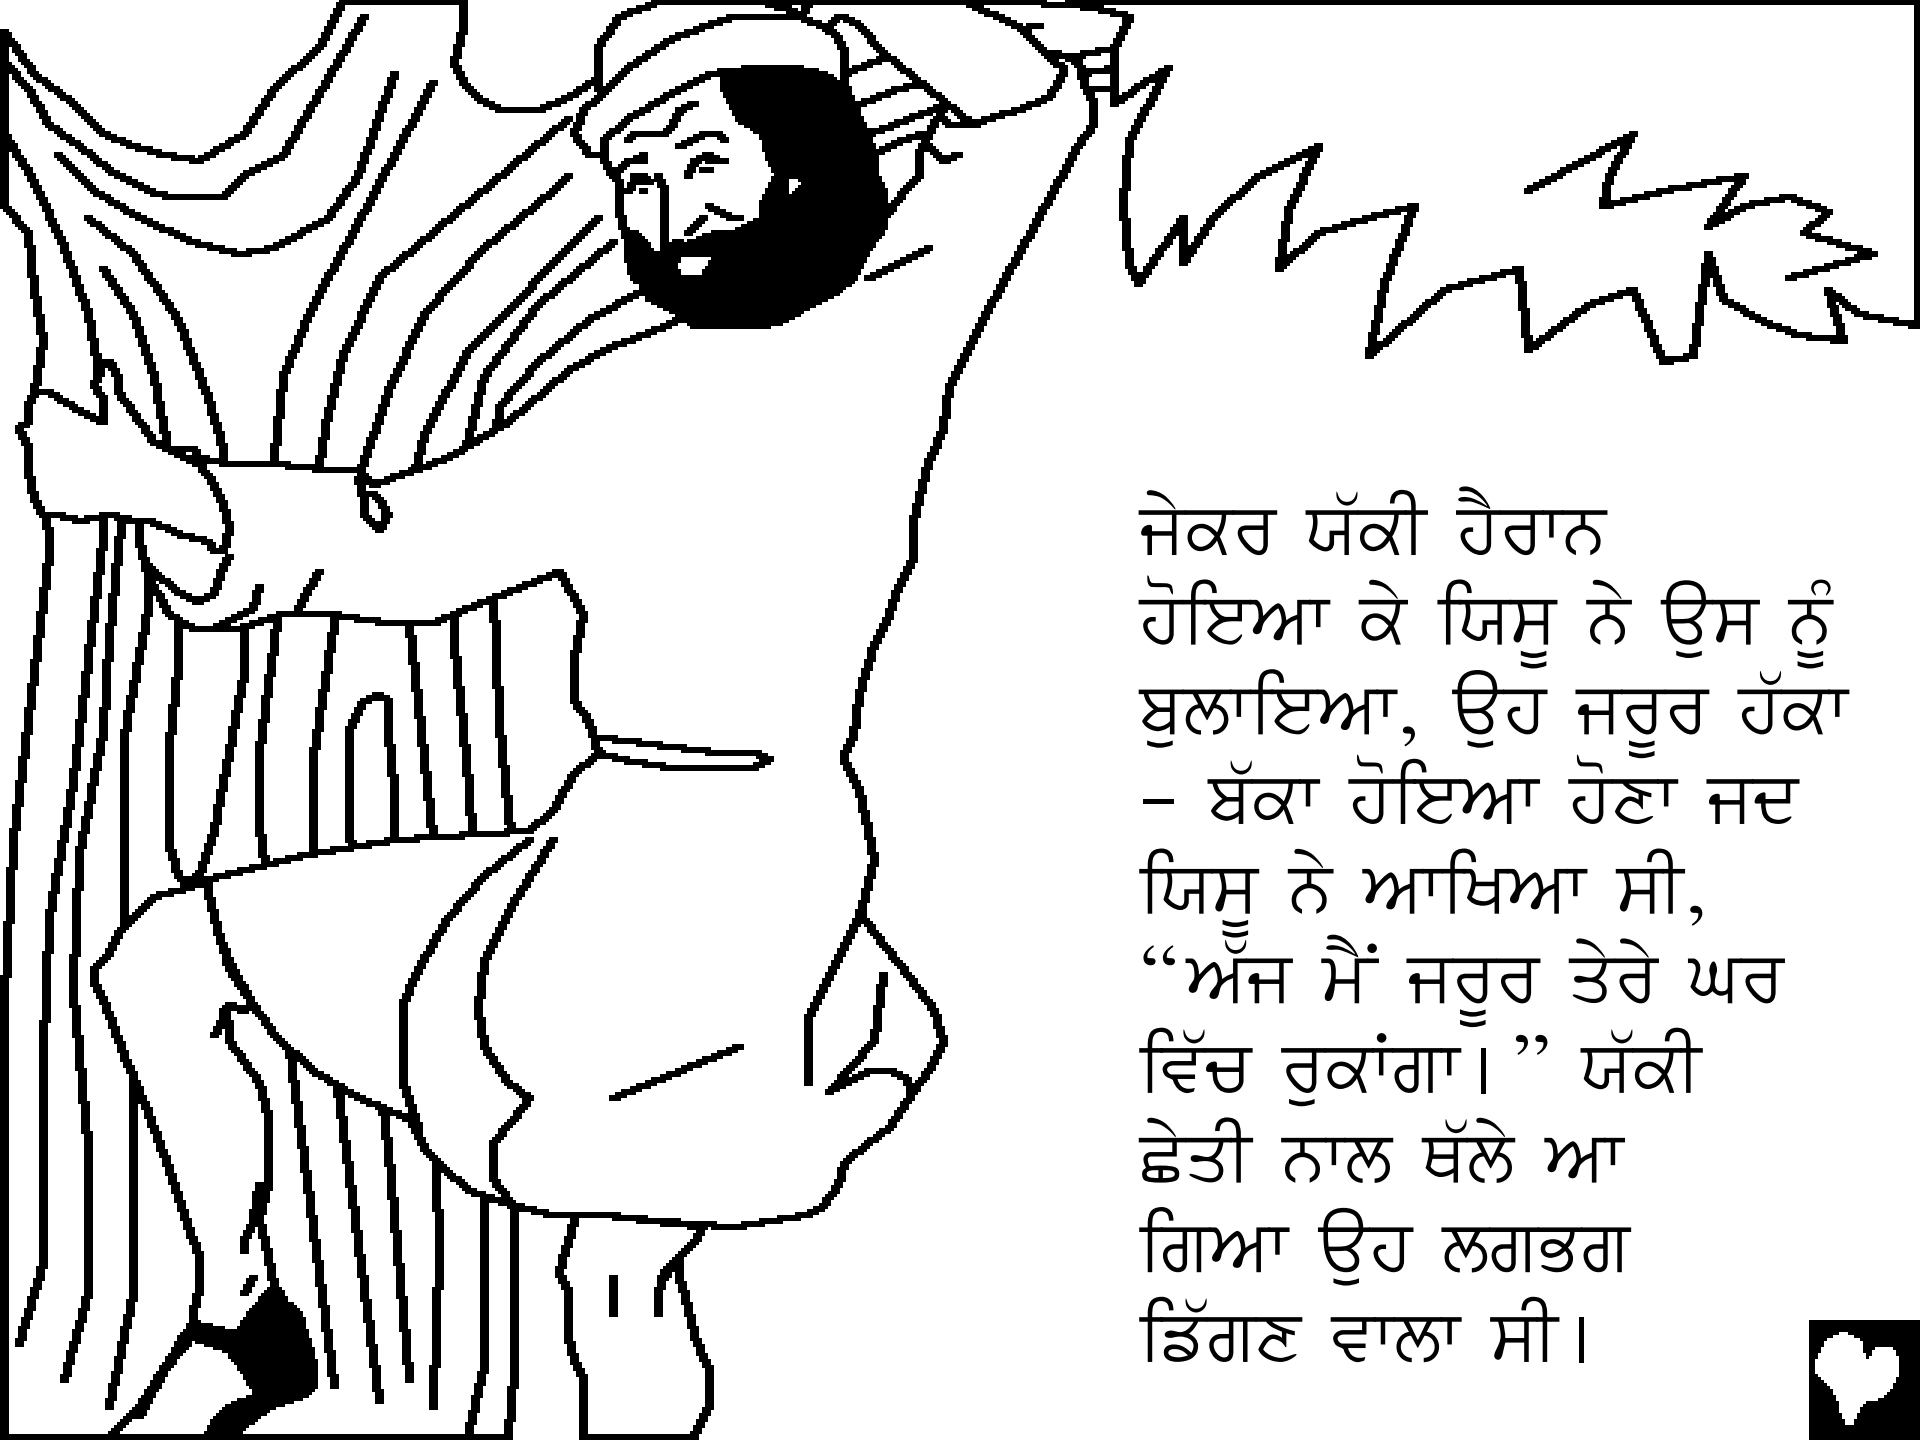 ਜੇਕਰ ਯੱਕੀ ਹੈਰਾਨ
ਹੋਇਆ ਕੇ ਯਿਸੂ ਨੇ ਉਸ ਨੂੰ
ਬੁਲਾਇਆ, ਉਹ ਜਰੂਰ ਹੱਕਾ
– ਬੱਕਾ ਹੋਇਆ ਹੋਣਾ ਜਦ
ਯਿਸੂ ਨੇ ਆਖਿਆ ਸੀ,
“ਅੱਜ ਮੈਂ ਜਰੂਰ ਤੇਰੇ ਘਰ
ਵਿੱਚ ਰੁਕਾਂਗਾ।” ਯੱਕੀ
ਛੇਤੀ ਨਾਲ ਥੱਲੇ ਆ
ਗਿਆ ਉਹ ਲਗਭਗ
ਡਿੱਗਣ ਵਾਲਾ ਸੀ।